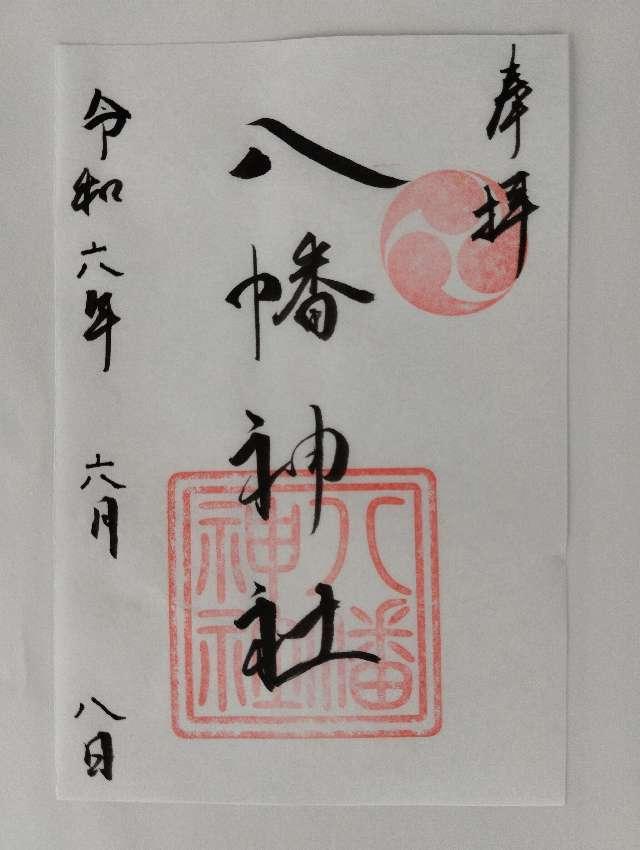 奉拝
八幡神社
八幡
神社
令和六年 六月 八日